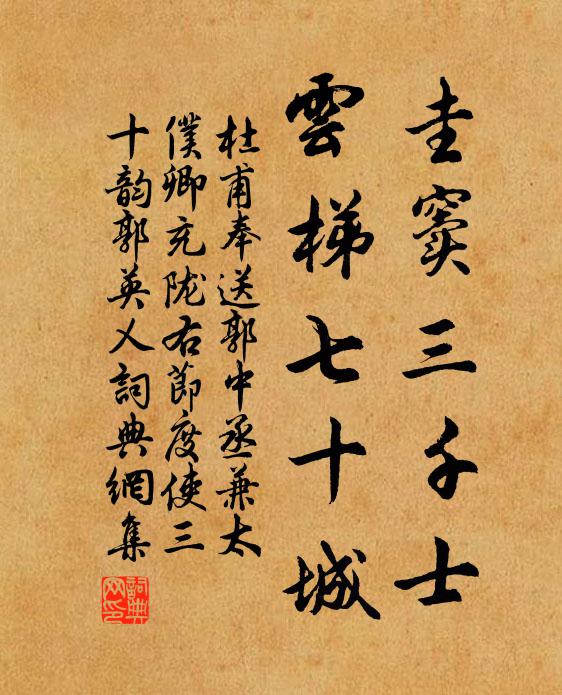 圭竇三千士
雲梯七十城
杜甫奉送郭中丞兼太
僕卿充陇右節度使三
十韵郭英乂詞典網集
詞典网印